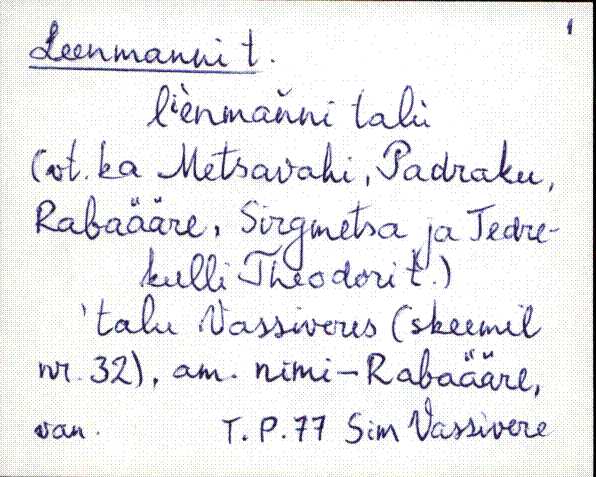 1
Leenmanni t.
lìenmańni talù
(vt. ka Metsavahi, Padraku,
Rabaääre, Sirgmetsa ja Tedre-
kulli Theodori t.)
'talu Vassiveres (skeemil
nr. 32), am. nimi - Rabaääre,
van. T. P. 77 Sim Vassivere